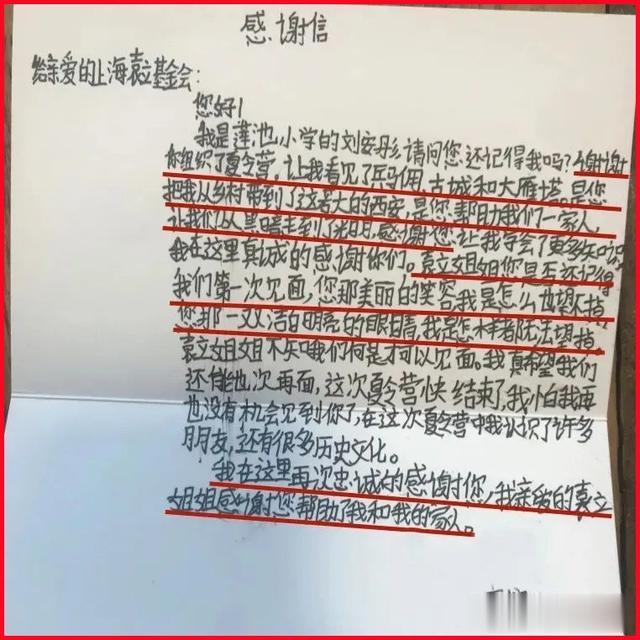 感谢信
给亲爱的上海袁立基金会:
您好!
我是莲池小学的刘安彤,请问您还记得我吗?谢谢
你组织了夏令营,让我看见了兵马俑、古城和大雁塔。是您
把我从乡村带到了这若大的西安,是您帮助我们一家人
让我们从黑暗走到了光明,感谢您让我学会了更多知识
我在这里真诚的感谢你们。袁立姐姐您是否还记得
我们第一次见面,您那美丽的笑容我是怎么也望不掉
您那一双洁白明亮的眼睛,我是怎样都无法望掉。
袁立姐姐不知哦我们何是才可以见面。我真希望我们
还能也次再面,这次夏令营快结束了,我怕我再
也没有机会见到你了,在这次夏令营中我认识了许多
朋友,还有很多历史文化。
我在这里再次忠诚的感谢您,我亲爱的袁立
姐姐感谢您帮助了我和我的家人。